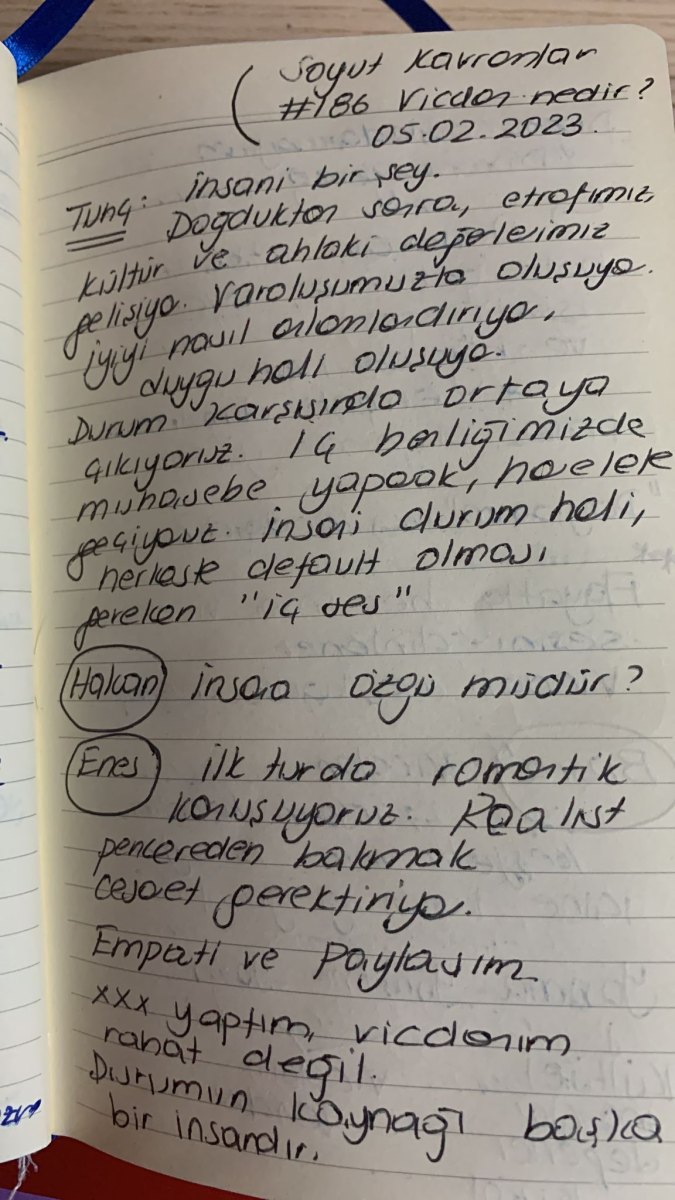 (Soyut Kavramlar
#186 Vicdan nedir?
05.02.2023.
Tunç: insani bir şey.
Doğduktan sonra, etrafımız,
kültür ve ahlaki değerlerimiz
gelişiyo. Varoluşumuzla oluşuyo.
iyiyi nasıl anlamlandırıyo,
duygu hali oluşuyo.
Durum karşısında ortaya
çıkıyoruz. iç benliğimizde
muhasebe yaparak, harekete
geçiyoruz. insani durum hali,
herkeste default olması
gereken "iç ses"
Hakan insana özgü müdür?
Enes ilk turda romantik
konuşuyoruz. Realist
pencereden bakmak
cesaet gerektiriyo.
Empati ve Paylaşım
xxx yaptım, vicdanım
rahat değil.
Durumun kaynağı başka
bir insandır.